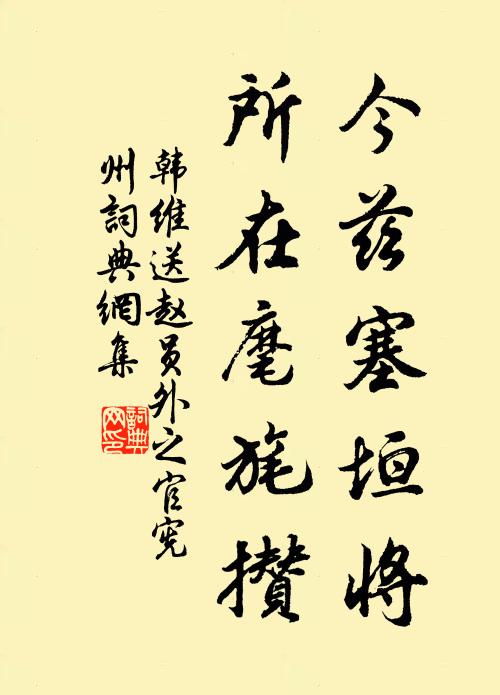 今兹塞垣将
所在麾旄攒
韩维送赵员外之官宪
州詞典網集
詞典网印